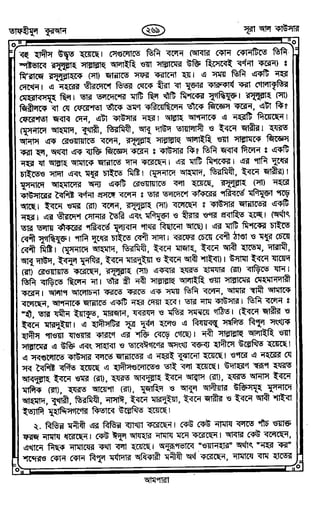 তাফহীমুল কুরআন ২৬৯ সূরা আল কাউসার
বহু হাদীস উদ্ধৃত হয়েছে। সেগুলোতে তিনি বলেন (আবার কোন কোনটিতে তিনি
স্পষ্টভাবে রসূলুল্লাহ সাল্লাল্লাহু আলাইহি ওয়া সাল্লামের উক্তি হিসেবেই বর্ণনা করেন) :
মি'রাজে রসূলুল্লাহকে (সা) জান্নাতে সফর করানো হয়। এ সময় তিনি একটি নহর
দেখেন। এ নহরের তীরদেশে ভিতর থেকে হীরা বা মুক্তার কারুকার্য করা গোলাকৃতির
মেহরাবসমূহ ছিল। তার তলদেশের মাটি ছিল খাঁটি মিশকের সুগন্ধিযুক্ত। রসূলুল্লাহ (সা)
জিব্রীলকে বা যে ফেরেশতা তাঁকে ভ্রমণ করিয়েছিলেন তাঁকে জিজ্ঞেস করেন, এটা কি?
ফেরেশতা জবাব দেন, এটা কাউসার নহর। আল্লাহ আপনাকে এ নহরটি দিয়েছেন।
(মুসনাদে আহমাদ, বুখারী, তিরমিযী, আবু দাউদ তায়ালাসী ও ইবনে জারীর)। হযরত
আনাস এক রেওয়ায়াতে বলেন, রসূলুল্লাহ সাল্লাল্লাহু আলাইহি ওয়া সাল্লামকে জিজ্ঞেস
করা হল, অথবা এক ব্যক্তি জিজ্ঞেস করেন : কাউসার কি? তিনি জবাব দিলেন : একটি
নহর যা আল্লাহ আমাকে জান্নাতে দান করেছেন। এর মাটি মিশকের। এর পানি দুধের
চাইতেও সাদা এবং মধুর চাইতে মিষ্টি। (মুসনাদে আহমাদ, তিরমিযী, ইবনে জারীর)।
মুসনাদে আহমাদের অন্য একটি রেওয়ায়াতে বলা হয়েছে, রসূলুল্লাহ (সা) নহরে
কাউসারের বৈশিষ্ট বর্ণনা প্রসঙ্গে বলেন : তার তলদেশে কাঁকরের পরিবর্তে মণিমুক্তা পড়ে
আছে। ইবনে ওমর (রা) বলেন, রসূলুল্লাহ (সা) বলেছেন : কাউসার জান্নাতের একটি
নহর। এর তীরদেশ সোনার তৈরি এবং মণিমুক্তা ও হীরার ওপর প্রবাহিত হচ্ছে। (অর্থাৎ
তার তলায় কাঁকরের পরিবর্তে মূল্যবান পাথর বিছানো আছে)। এর মাটি মিশকের চাইতে
বেশী সুগন্ধিযুক্ত। পানি দুধের চাইতে বেশী সাদা। বরফের চেয়ে বেশী ঠাণ্ডা ও মধুর চেয়ে
বেশী মিষ্টি। (মুসনাদে আহমাদ, তিরমিযী, ইবনে মাজাহ, ইবনে আবী হাতেম, দারামী,
আবু দাউদ, ইবনুল মুনযির, ইবনে মারদুইয়া ও ইবনে আবী শাইবা)। উসামা ইবনে যায়েদ
(রা) রেওয়ায়াত করেছেন, রসূলুল্লাহ (সা) একবার হযরত হামযার (রা) বাড়িতে যান।
তিনি বাড়িতে ছিলেন না। তাঁর স্ত্রী নবী সাল্লাল্লাহু আলাইহি ওয়া সাল্লামের মেহমানদারী
করেন। আলাপ আলোচনা করতে করতে এক সময় তিনি বলেন, আমার স্বামী আমাকে
বলেছেন, আপনাকে জান্নাতে একটি নহর দেয়া হবে। তার নাম কাউসার। তিনি বলেন :
"হাঁ, তার যমীন ইয়াকূত, মারজান, যবরযদ ও মতির সমন্বয়ে গঠিত। (ইবনে জারীর ও
ইবনে মারদুইয়া। এ হাদীসটির সূত্র দুর্বল হলেও এ বিষয়বস্তু সম্বলিত বিপুল সংখ্যক
হাদীস পাওয়া যাওয়ার কারণে এর শক্তি বেড়ে গেছে)। নবী সাল্লাল্লাহু আলাইহি ওয়া
সাল্লামের এ উক্তি এবং সাহাবা ও তাবেঈগণের অসংখ্য বক্তব্য হাদীসে উল্লেখিত হয়েছে।
এ সবগুলোতে কাউসার বলতে জান্নাতের এ নহরই বুঝানো হয়েছে। ওপরে এ নহরের যে
সব বৈশিষ্ট বর্ণিত হয়েছে এ হাদীসগুলোতেও তাই বলা হয়েছে। উদাহরণ স্বরূপ হযরত
আবদুল্লাহ ইবনে ওমর (রা), হযরত আবদুল্লাহ ইবনে আব্বাস (রা), হযরত আনাস ইবনে
মালিক (রা), হযরত আয়েশা (রা), মুজাহিদ ও আবুল আলীয়ার উক্তিসমূহ মুসনাদে
আহমাদ, বুখারী, তিরমিযী, নাসাঈ, ইবনে মারদুইয়া, ইবনে জারীর ও ইবনে আবী শাইবা
ইত্যাদি মুহাদ্দিসগণের কিতাবে উল্লেখিত হয়েছে।
২. বিভিন্ন মনীষী এর বিভিন্ন ব্যাখ্যা করেছেন। কেউ কেউ নামায বলতে পাঁচ ওয়াক্ত
ফরজ নামায ধরেছেন। কেউ ঈদুল আযহার নামায মনে করেছেন। আবার কেউ বলেছেন,
এখানে নিছক নামাযের কথা বলা হয়েছে। অনুরূপভাবে "ওয়ানহার" অর্থাৎ "নহর কর"
শব্দেরও কোন কোন বিপুল মর্যাদার অধিকারী মনীষী অর্থ করেছেন, নামাযে বাম হাতের
আমপারা